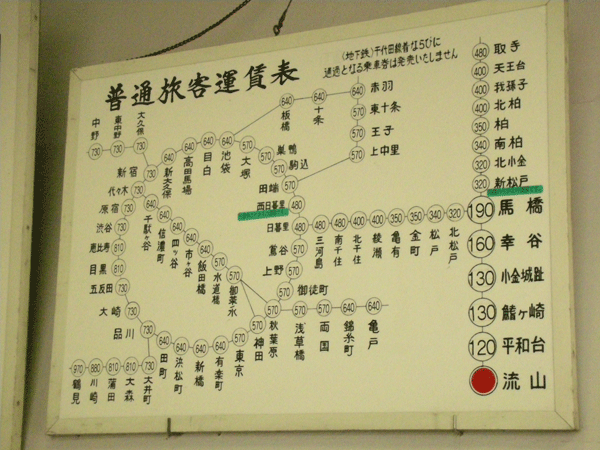 普通旅客運賃表
(地下鉄)千代田線着ならびに
通過となる乗車券は発売いたしません
480 取手
400 天王台
400 我孫子
400 北柏
350 柏
340 南柏
320 北小金
320 新松戸
190 馬橋
160 幸谷
130 小金城趾
130 鰭ヶ崎
120 平和台
流山
320 北松戸
320 松戸
340 金町
350 亀有
400 綾瀬
400 北千住
400 南千住
480 三河島
480 日暮里
西日暮里
570 田端
570 駒込
570 巣鴨
570 大塚
640 池袋
640 目白
640 高田馬場
640 新大久保
新宿
730 代々木
730 原宿
730 渋谷
730 恵比寿
730 目黒
730 五反田
730 大崎
730 品川
640 田町
640 浜松町
640 新橋
640 有楽町
570 東京
570 神田
570 秋葉原
570 御徒町
570 上野
570 鶯谷
640 板橋
640 十条
640 赤羽
570 東十条
570 王子
570 上中里
730 大久保
730 東中野
730 中野
640 千駄ヶ谷
640 信濃町
640 四ッ谷
640 市ヶ谷
570 飯田橋
570 水道橋
570 御茶ノ水
570 浅草橋
570 両国
640 錦糸町
640 亀戸
730 大井町
810 大森
810 蒲田
880 川崎
970 鶴見